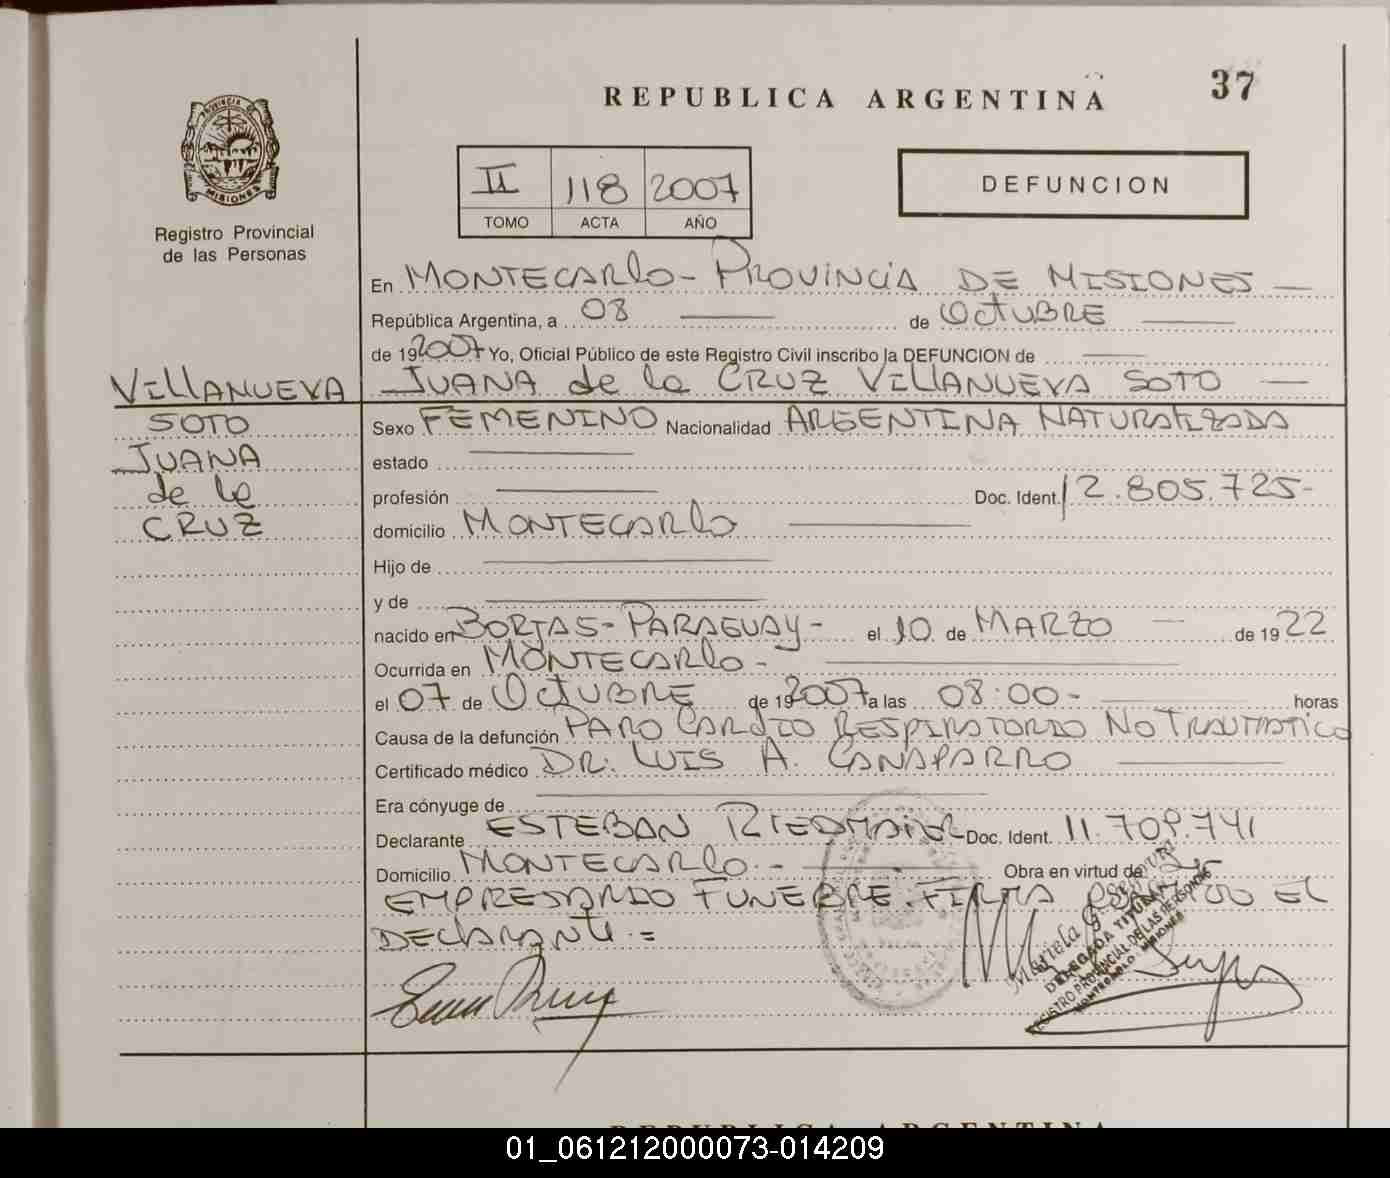 REPUBLICA ARGENTINA
37
PROVINCIA DE
MISIONES
Registro Provincial
de las Personas
II 118 2007
TOMO ACTA AÑO
DEFUNCION
En MONTECARLO - PROVINCIA DE MISIONES
República Argentina, a 08 de OCTUBRE
de 192007 Yo, Oficial Público de este Registro Civil inscribo la DEFUNCION de
JUANA de la CRUZ VILLANUEVA SOTO
VILLANUEVA
SOTO
JUANA
de la
CRUZ
Sexo FEMENINO Nacionalidad ARGENTINA NATURALIZADA
estado
profesión Doc. Ident. 12.805.725-
domicilio MONTECARLO
Hijo de
y de
nacido en BORJAS - PARAGUAY - el 10 de MARZO de 1922
Ocurrida en MONTECARLO -
el 07 de OCTUBRE de 192007 a las 08:00 - horas
Causa de la defunción PARO CARDIO RESPIRATORIO NO TRAUMATICO
Certificado médico DR. LUIS A. CANAPARRO
Era cónyuge de
Declarante ESTEBAN RIEDMAIER Doc. Ident. 11.709.741
Domicilio MONTECARLO. - Obra en virtud de
EMPRESARIO FUNEBRE. FIRMA EL
DECLARANTE. =
Mariela G.
DELEGADA TITULAR
REGISTRO PROVINCIAL DE LAS PERSONAS
MONTECARLO - MISIONES
REPUBLICA ARGENTINA
01_061212000073-014209